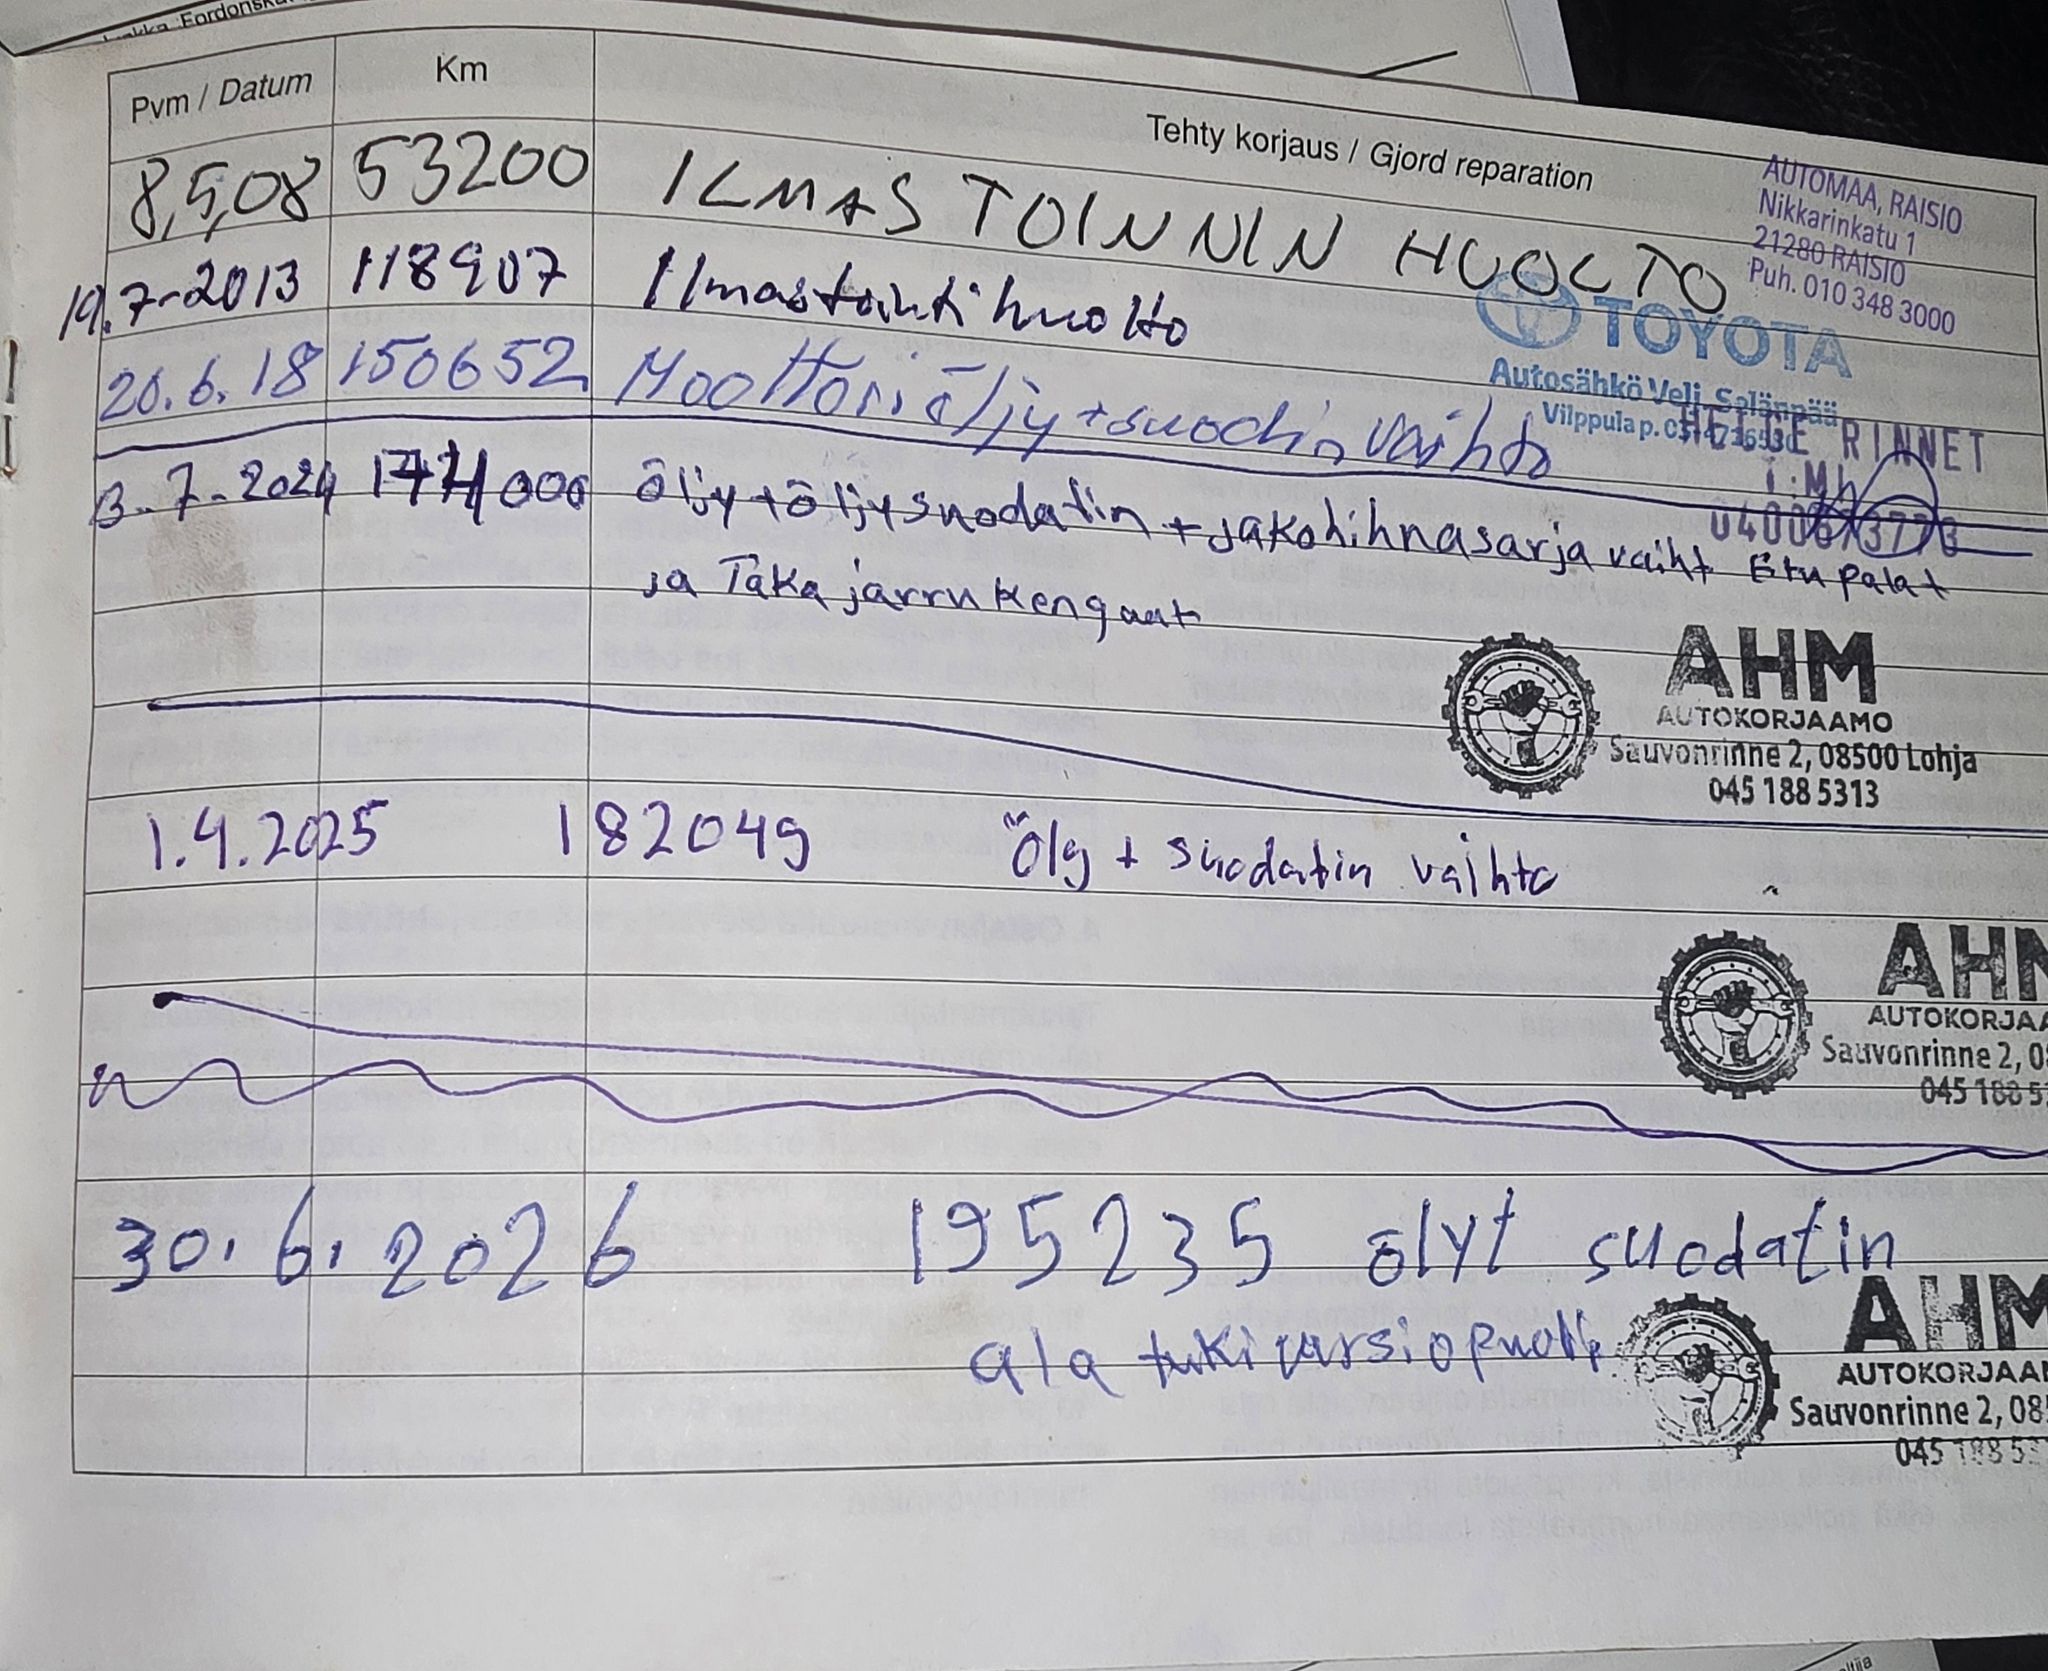 Pvm / Datum Km Tehty korjaus / Gjord reparation
8,5,08 53200 ILMASTOINNIN HUOLTO
AUTOMAA, RAISIO
Nikkarinkatu 1
21280 RAISIO
Puh. 010 348 3000
19.7-2013 118907 Ilmastointihuolto
TOYOTA
Autosähkö Veli Salänpää
Vilppula p.
20.6.18 150652 Moottoriöljy+suodin vaihto
HELGE RINNET
T:MI
3.7-2024 174000 öljy+öljysuodatin +jakohihnasarja vaiht Etu palat
ja Taka jarru kengaat
AHM
AUTOKORJAAMO
Sauvonrinne 2, 08500 Lohja
045 188 5313
1.4.2025 182049 Öly + suodatin vaihto
AHM
AUTOKORJAA
Sauvonrinne 2, 08
045 188 53
30.6.2026 195235 ölyt suodatin
ala tukivarsi
AHM
AUTOKORJAA
Sauvonrinne 2, 085
045 188 53